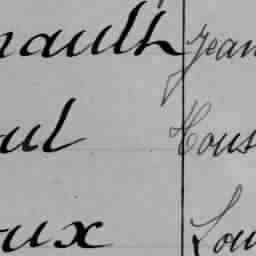 nault Jean
ul Cous
oux Lou